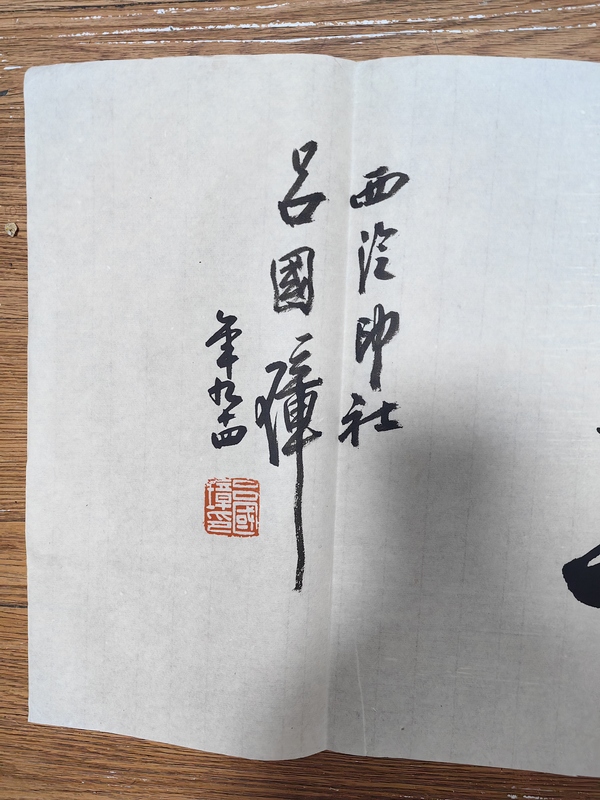 西泠印社
吕國璋
年九十四
吕國璋印